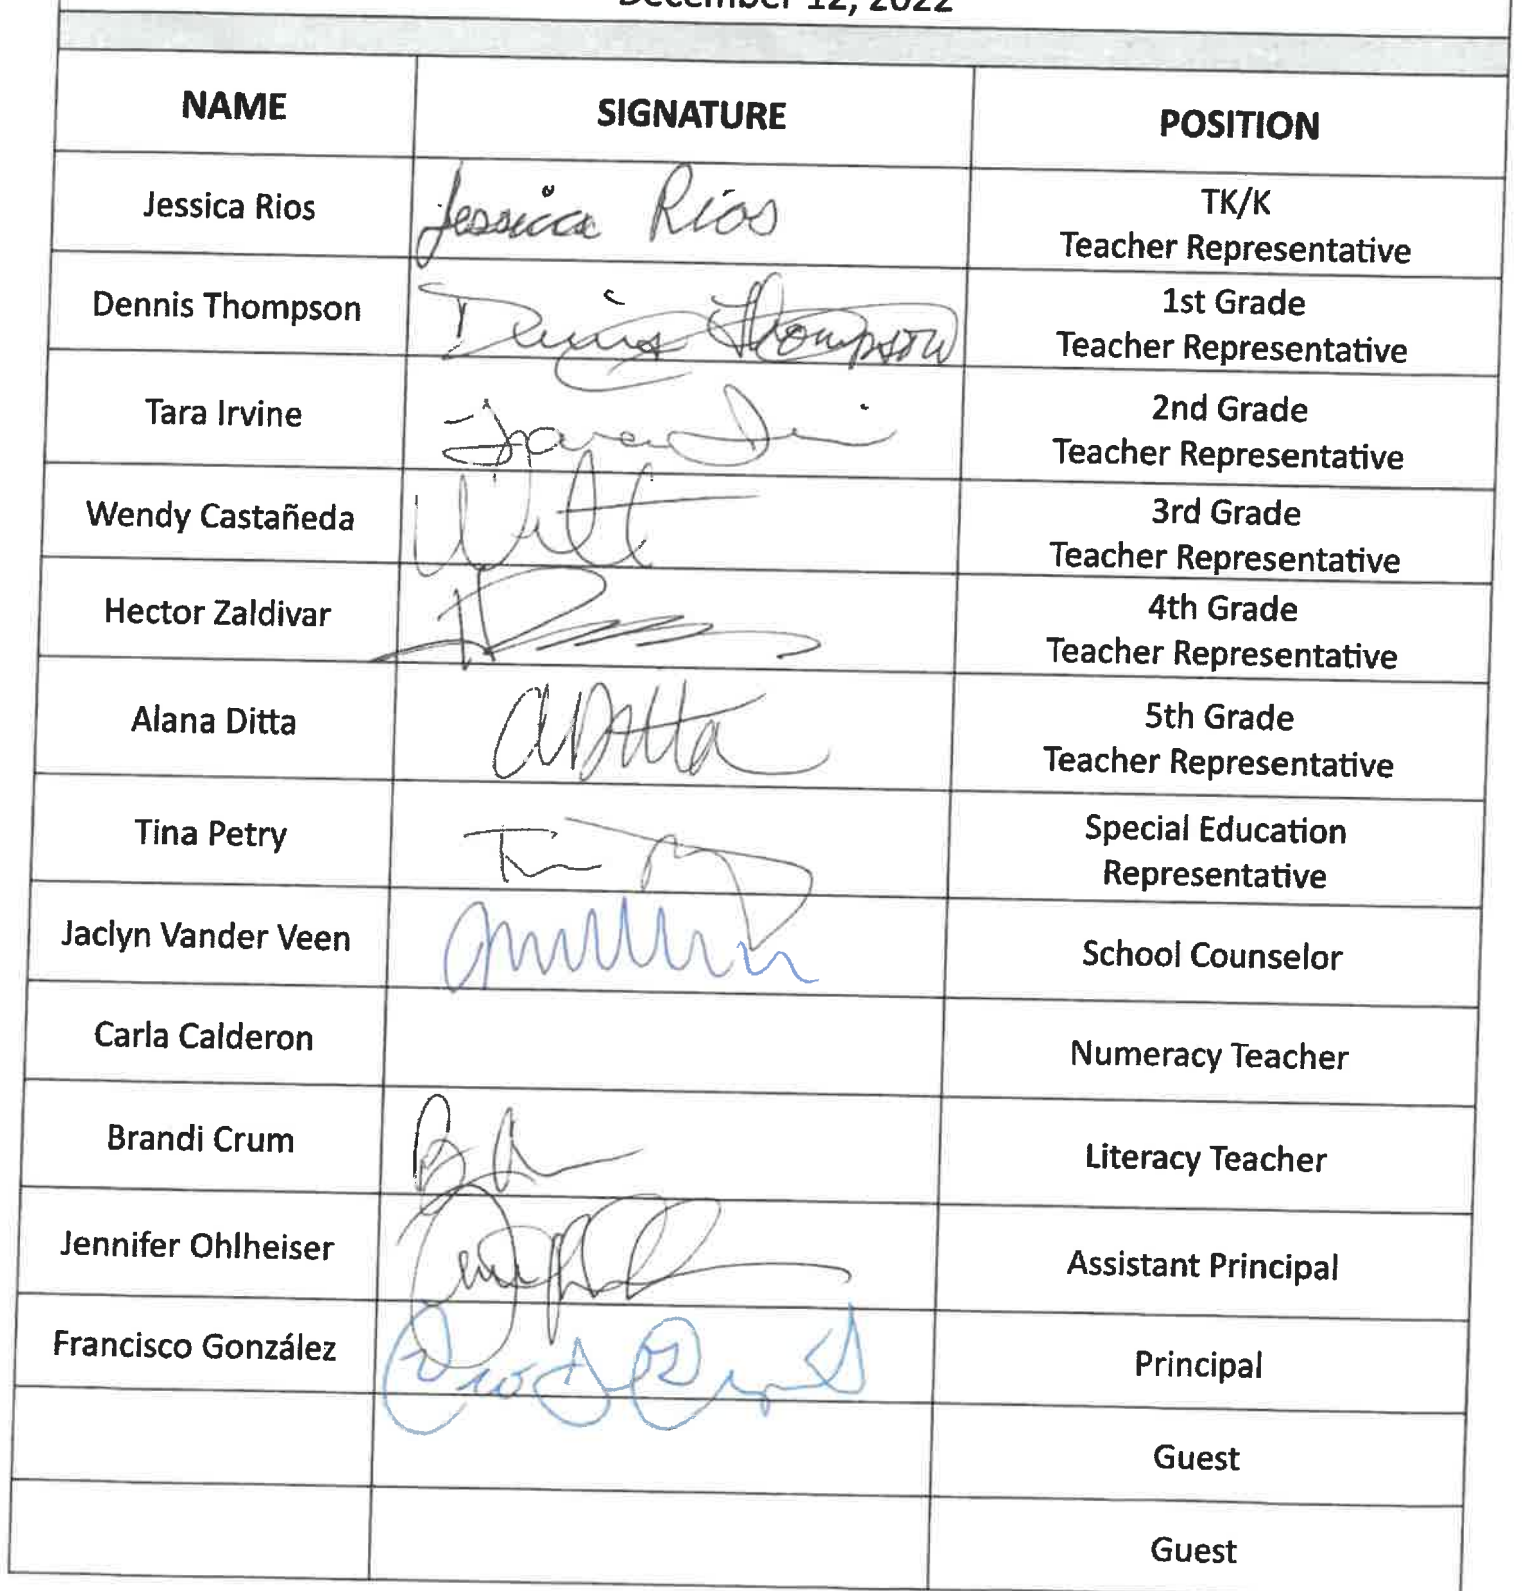 December 12, 2022
NAME SIGNATURE POSITION
Jessica Rios Jessica Rios TK/K
Teacher Representative
Dennis Thompson Dennis Thompson 1st Grade
Teacher Representative
Tara Irvine 2nd Grade
Teacher Representative
Wendy Castañeda 3rd Grade
Teacher Representative
Hector Zaldivar 4th Grade
Teacher Representative
Alana Ditta ADitta 5th Grade
Teacher Representative
Tina Petry Special Education
Representative
Jaclyn Vander Veen School Counselor
Carla Calderon Numeracy Teacher
Brandi Crum Literacy Teacher
Jennifer Ohlheiser Assistant Principal
Francisco González Principal
Guest
Guest